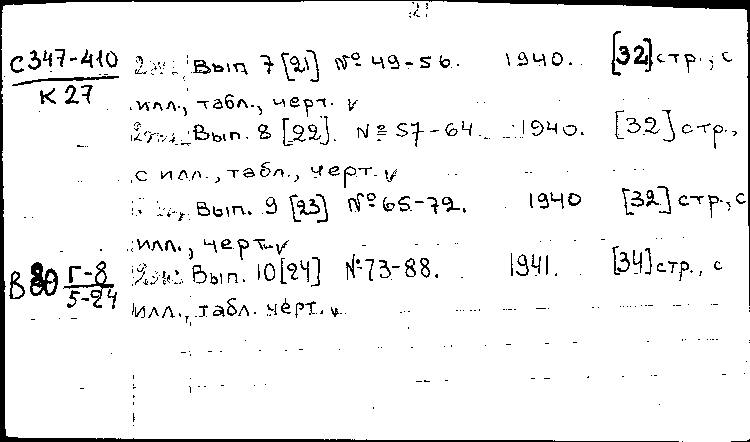 21
С347-410 2экз. Вып. 7 [21] № 49-56. 1940. [32] стр., с
К 27
илл., табл., черт. v
2экз. Вып. 8 [22]. № 57-64. 1940. [32] стр.,
с илл., табл., черт. v
Вып. 9 [23] № 65-72. 1940 [32] стр., с
илл., черт. v
В 80 Г-8 2экз. Вып. 10 [24] № 73-88. 1941. [34] стр., с
5-24
илл., табл. черт. v